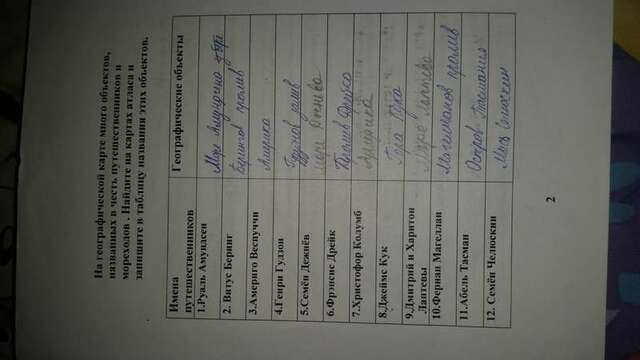 На географической карте много объектов,
названных в честь путешественников и
мореходов . Найдите на картах атласа и
запишите в таблицу названия этих объектов.
Имена
путешественников
Географические объекты
1.Руаль Амундсен
Море Амундсена
2. Витус Беринг
Берингов пролив
3.Америго Веспуччи
Америка
4.Генри Гудзон
Гудзонов залив
5.Семён Дежнёв
Дежнева
6.Фрэнсис Дрейк
Пролив Дрейка
7.Христофор Колумб
Америка
8.Джеймс Кук
Гора Кука
9.Дмитрий и Харитон
Лаптевы
Море Лаптева
10.Фернан Магеллан
Магелланов пролив
11.Абель Тасман
Остров Тасмания
12. Семён Челюскин
Мыс Челюскин
2